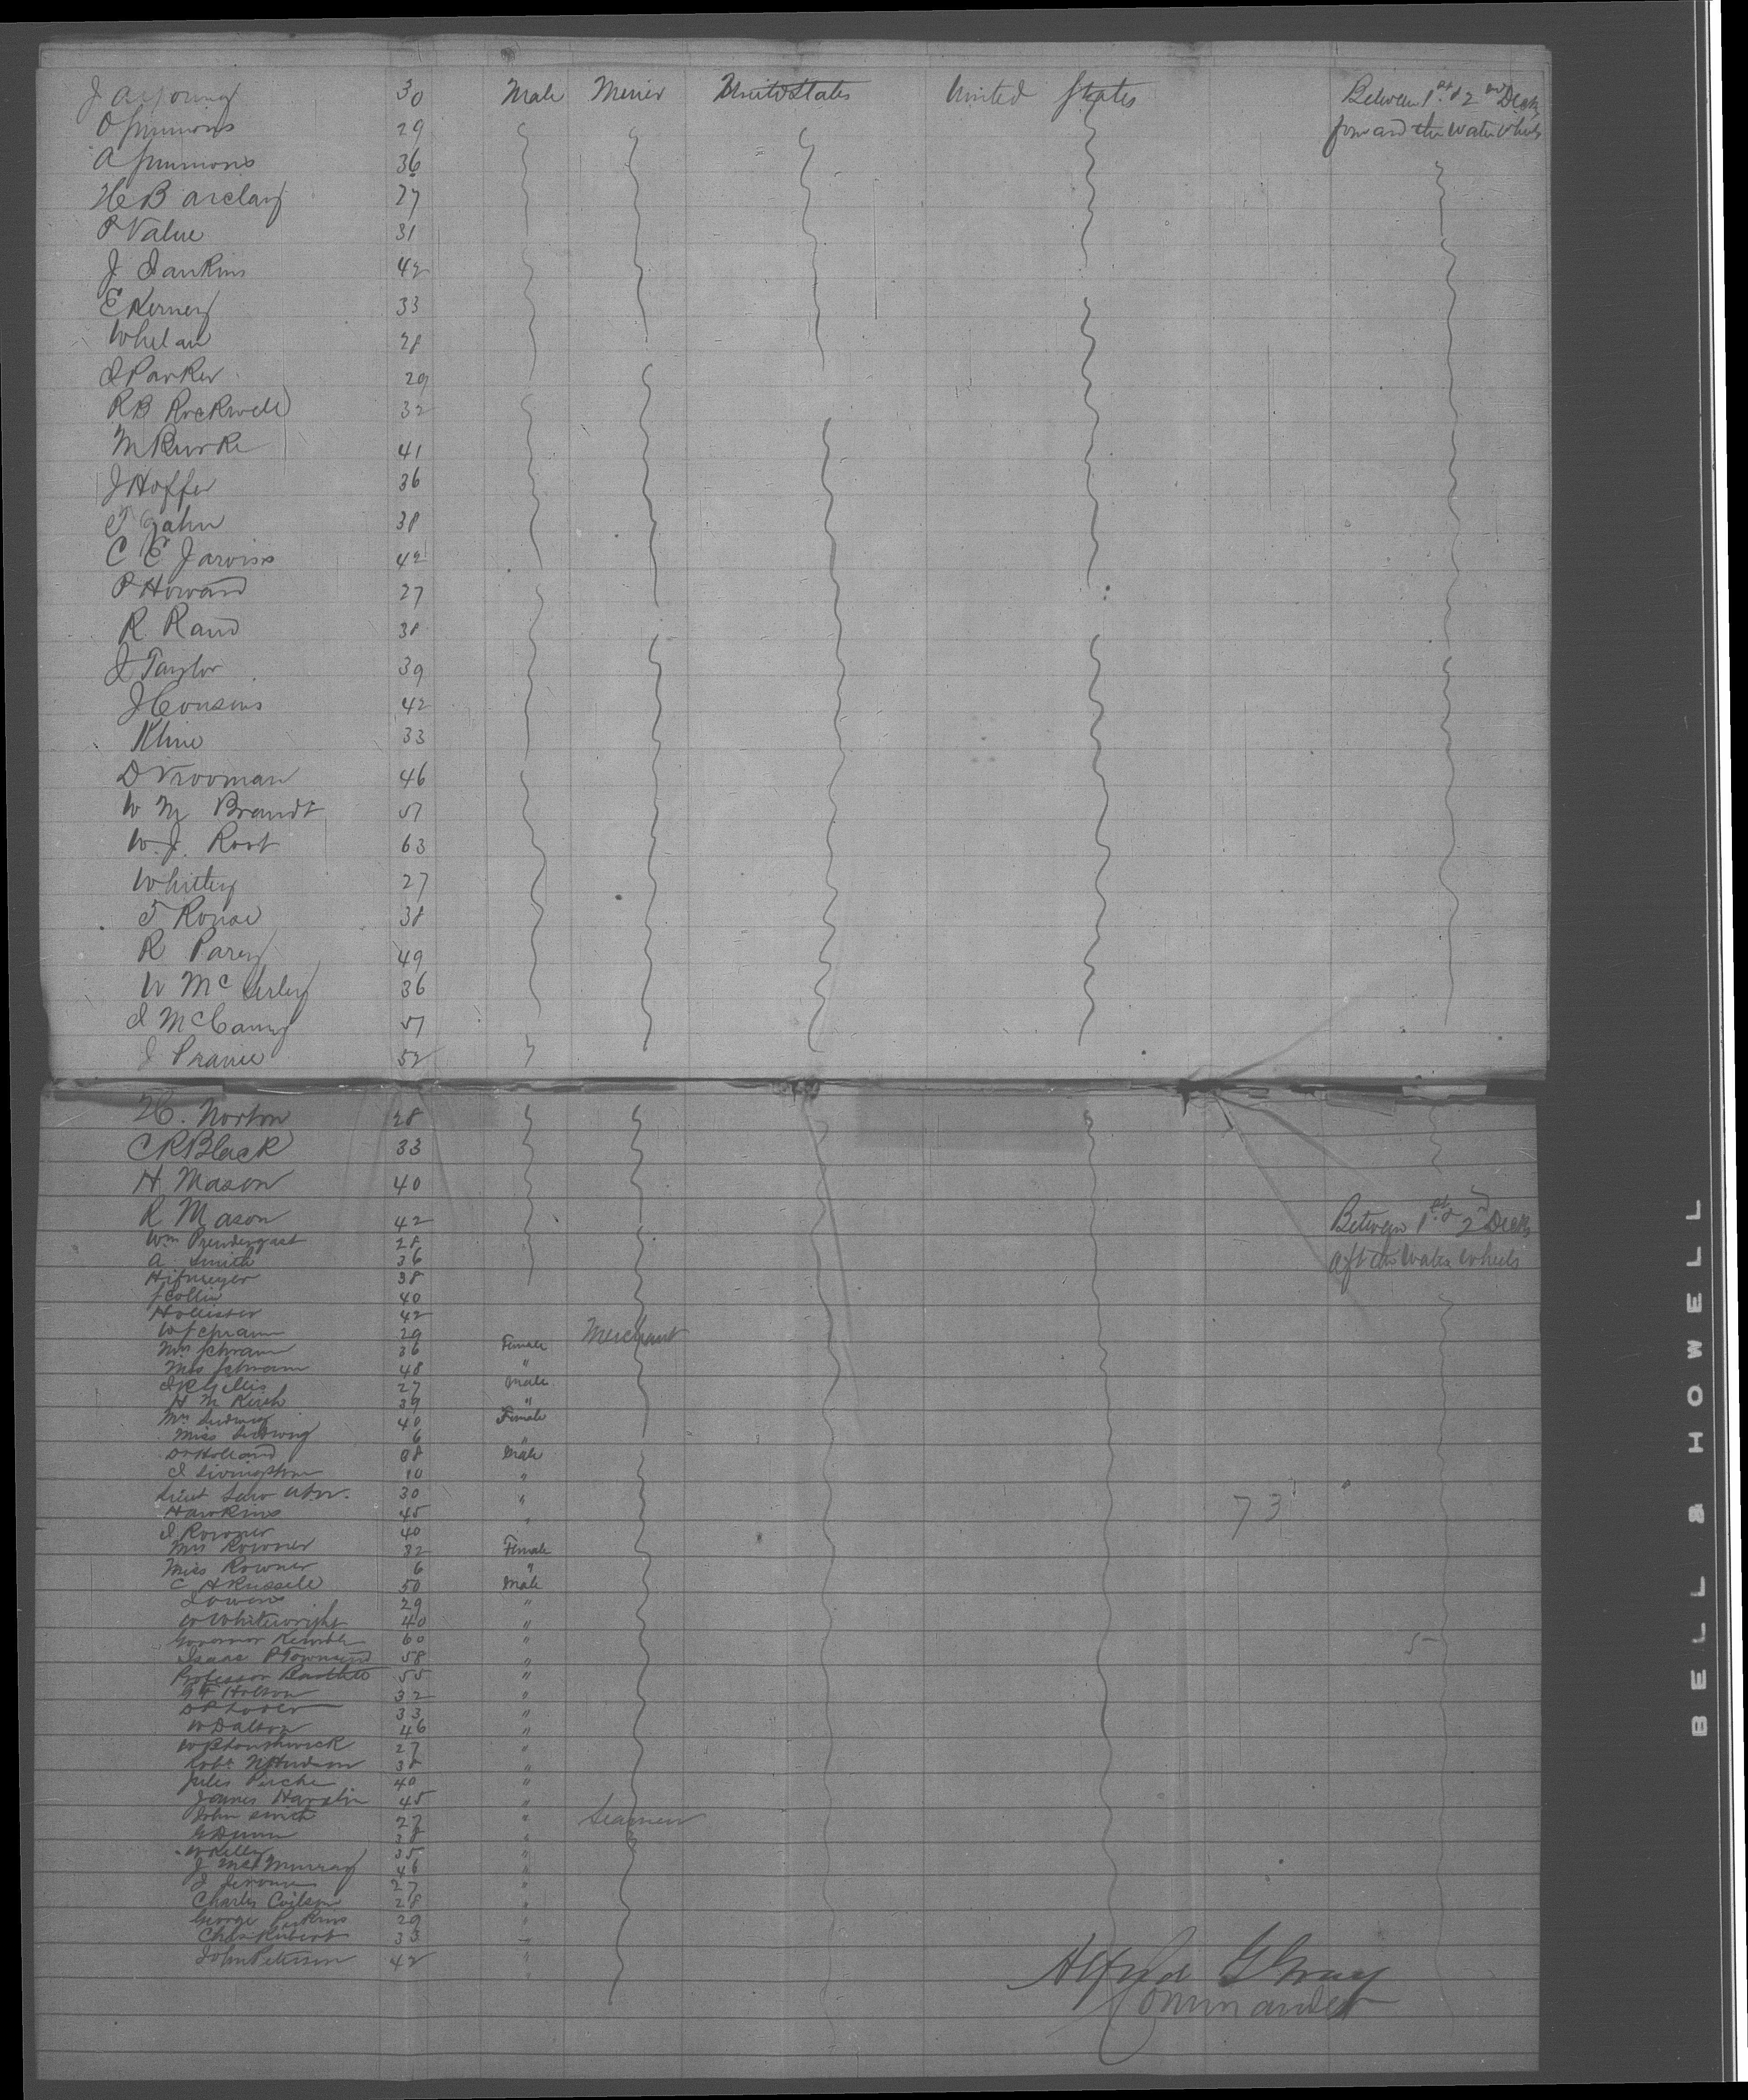 J A Young 30 Male Miner United States United States Between 1st & 2nd Deck
O Simmons 29 forward the water wheels
A Simmons 36
H Barclay 27
P Value 31
J Jankins 42
E Kerney 33
Whelan 28
J Parker 29
R B Rockwell 32
M Rurke 41
J Hoffer 36
T Gahn 38
C E Jarviss 42
P Howard 27
R Rand 38
J Taylor 39
J Cousins 42
Kline 33
D Vrooman 46
W M Brandt 51
W. J. Root 63
Whitey 27
T Rouse 38
R Parey 49
W McCurley 36
J McCamy 51
J Pranie 52
H. Norton 28
C R Black 33
H Mason 40
R Mason 42 Between 1st & 2d Decks
Wm Prendergast 28 aft the Water Wheels
A Smith 36
Hifmeyer 38
J Collin 40
Hollister 42
W Schramm 29 Merchant
Mrs Schramm 36 Female
Miss Schramm 48 "
J R Gillis 27 Male
H M Kirch 39 "
Mrs Ludwig 40 Female
Miss Ludwig 6 "
Dr Holland 38 Male
J Livingston 10 "
Lieut 30 "
Hawkins 45 " 73
J Rowner 40
Mrs Rowner 32 Female
Miss Rowner 6 "
C H Russell 50 Male
J Owens 29 "
W Whitewright 40 "
Governor Kemble 60 " 5
Isaac P Townsend 58 "
Professor Bartlett 55 "
G F Holson 32 "
33 "
W Dalton 46 "
27 "
Robt N Hudson 38 "
Jules Perche 40 "
James Havelin 45 "
John Smith 27 " Seamen
G Dunn 38 "
W Kelley 35 "
J McMurray 46 "
J Jerome 27 "
Charles Coilson 28 "
George Parkins 29 "
Chas Rubert 33
John Peterson 42 "
Alfred G Gray
Commander
BELL & HOWELL